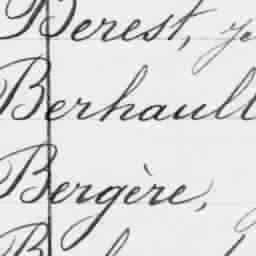 Berest,
Berhault
Bergère,